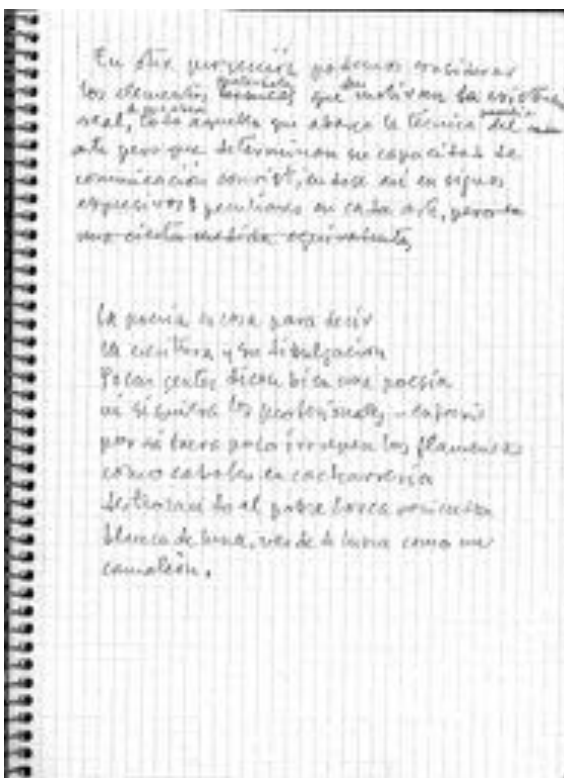 En otra proyección podemos considerar
los elementos que motivan la existencia
real, todo aquello que abarca la técnica del
arte pero que determinan su capacidad de
comunicación así en signos
expresivos peculiares en cada arte, pero en
una cierta medida equivalentes
La poesía es cosa para decir
La escritura y su divulgación
Pocas gentes dicen bien una poesía
ni siquiera los profesionales
por si fuera poco irrumpen los flamencos
como caballos en cacharrería
destrozando al pobre Lorca
blanca de luna, verde de luna como un
camaleón.